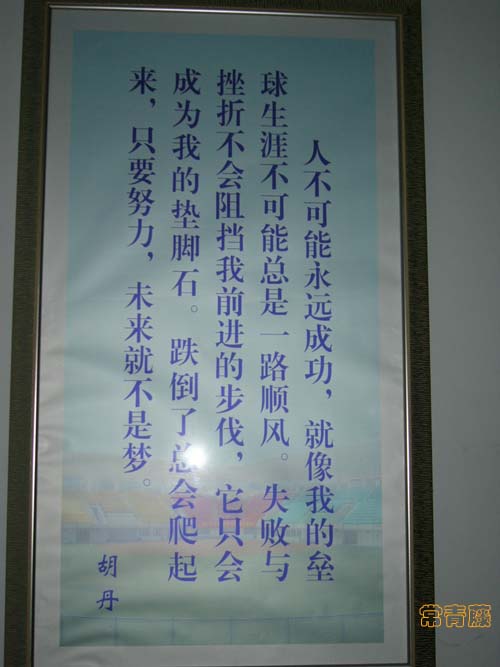 人不可能永远成功，就像我的垒
球生涯不可能总是一路顺风。失败与
挫折不会阻挡我前进的步伐，它只会
成为我的垫脚石。跌倒了总会爬起
来，只要努力，未来就不是梦。
胡丹
常青藤